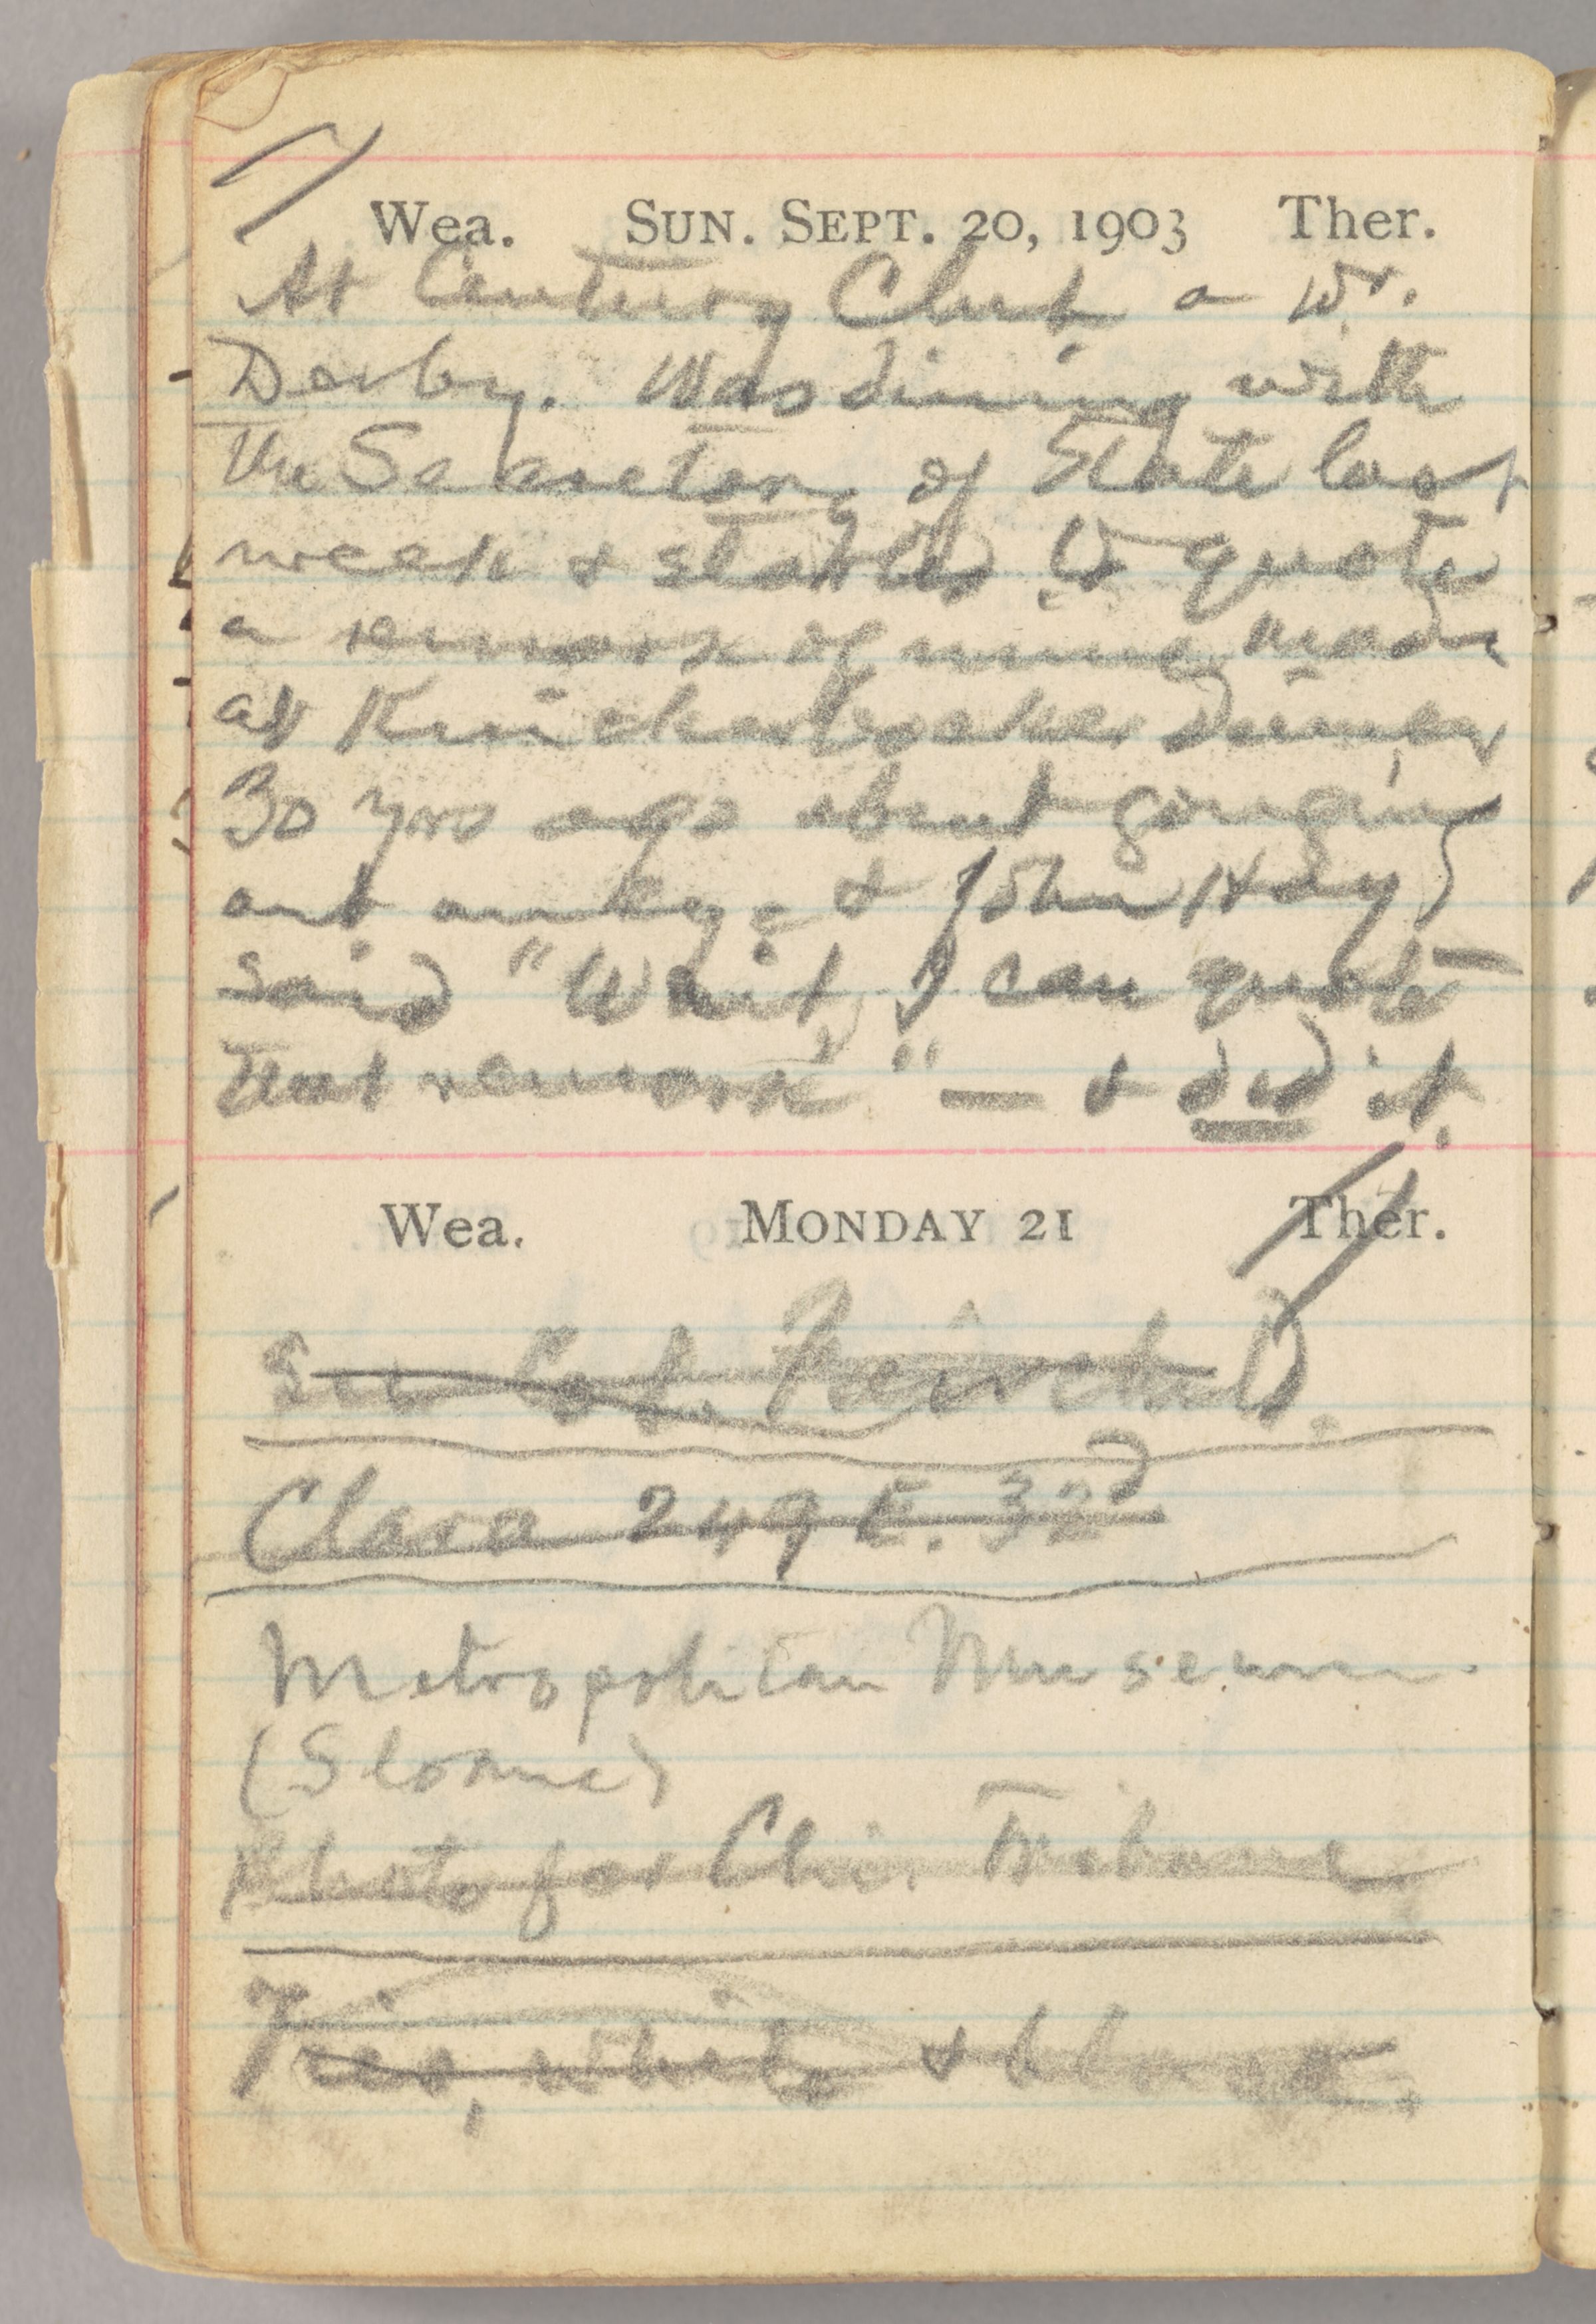 Wea. SUN. SEPT. 20, 1903 Ther.
At Century Club a Dr.
Derby. Was dining with
the Secretary of State last
week & started to quote
a remark of mine made
at Knickerbocker dinner
30 yrs ago about going
out &
John Hay
said "Wait, I can quote
that remark" — & did it.
Wea. MONDAY 21 Ther.
See Col. Fairchild.
Clara 249 E. 32d
Metropolitan Museum.
(Sloane)
Photo for Chi. Tribune
white &